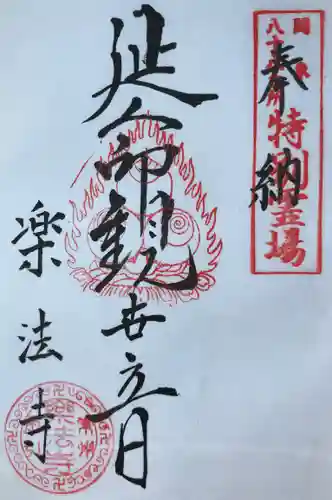 奉納
関東
八十八ヶ所
特別霊場
延命観世音
楽法寺